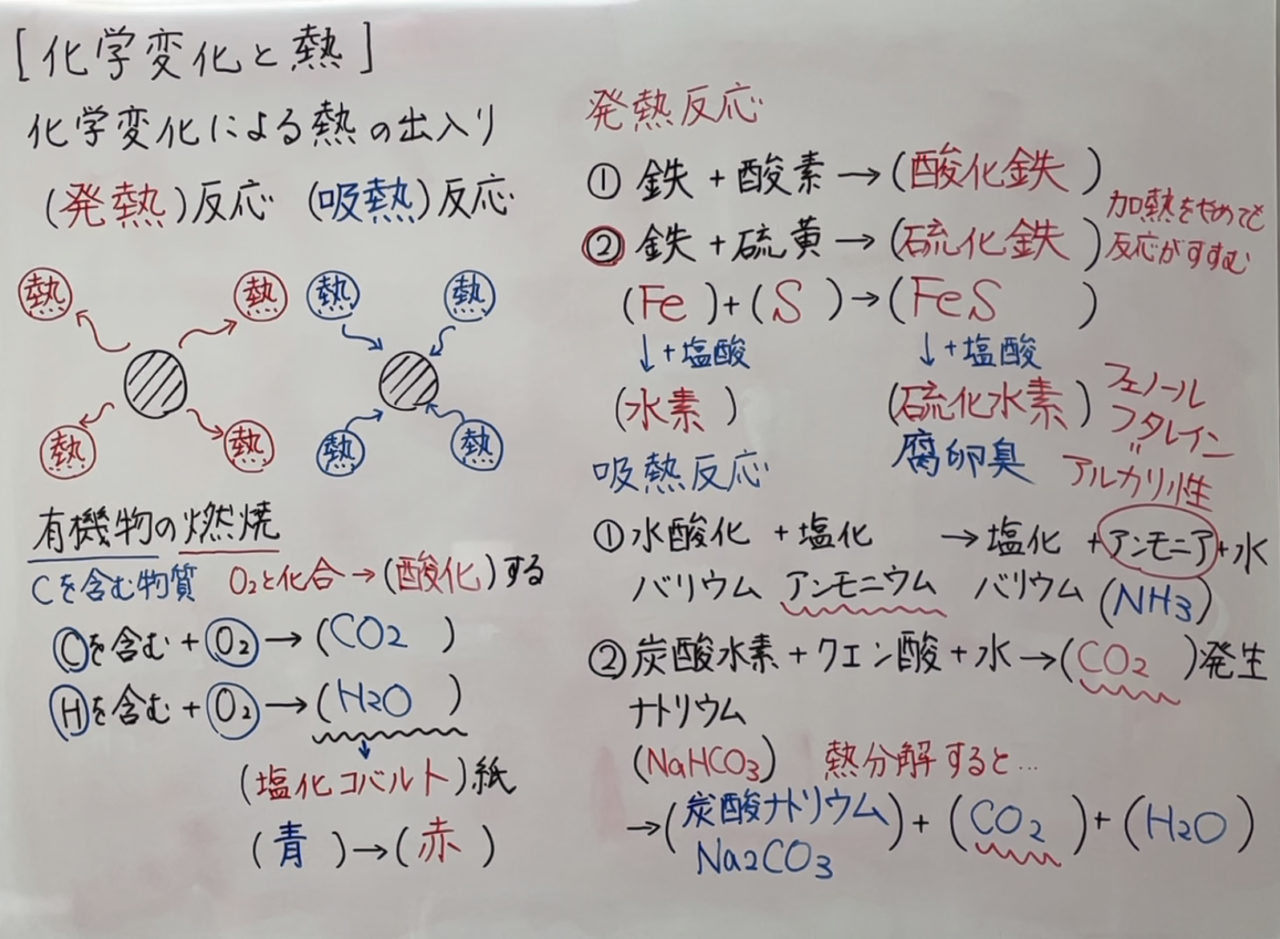 [化学変化と熱]
化学変化による熱の出入り
(発熱)反応 (吸熱)反応
熱 熱 熱 熱
熱 熱 熱 熱
有機物の燃焼
Cを含む物質 O2と化合→(酸化)する
Cを含む+O2→(CO2)
Hを含む+O2→(H2O)
↓
(塩化コバルト)紙
(青)→(赤)
発熱反応
①鉄+酸素→(酸化鉄)
②鉄+硫黄→(硫化鉄)
加熱をやめても
反応がすすむ
(Fe)+(S)→(FeS)
↓+塩酸 ↓+塩酸
(水素) (硫化水素)
腐卵臭
フェノール
フタレイン
〃
アルカリ性
吸熱反応
①水酸化 +塩化 →塩化 +アンモニア+水
バリウム アンモニウム バリウム (NH3)
②炭酸水素+クエン酸+水→(CO2)発生
ナトリウム
(NaHCO3) 熱分解すると…
→(炭酸ナトリウム Na2CO3)+(CO2)+(H2O)